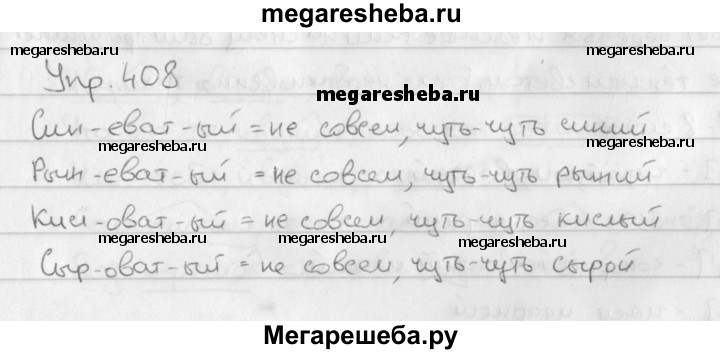 megaresheba.ru
megaresheba.ru megaresheba.ru megaresheba.ru
Упр. 408
megaresheba.ru
Син-еват-ый = не совсем, чуть-чуть синий
megaresheba.ru megaresheba.ru
Рыж-еват-ый = не совсем, чуть-чуть рыжий
Кисл-оват-ый = не совсем, чуть-чуть кислый
megaresheba.ru megaresheba.ru megaresheba.ru
Сыр-оват-ый = не совсем, чуть-чуть сырой
Мегарешеба.ру